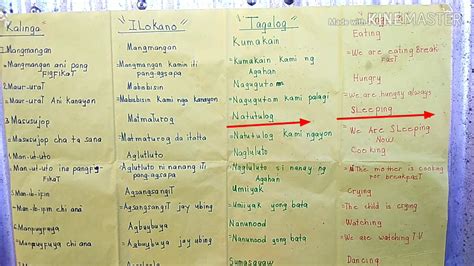 Kalinga
1. Mangmangan
= Mangmangan ani pang
pigpikat
2. Maur-urat
= Maur-urat Ani kanayon
3. Masusujop
= Masusujop cha ta sana
4. Man-ut-uto
= Man-ut-uto ina pangpig-
pikat
= Man-ib-ibil chi ana
"ILokano"
Mangmangan
= Mangmangan kamin iti
pang-agsapa
Mabibisin
= Mabibisin Kami nga Kanayon
Matmaturog
= Matmaturog da itatta
Aglutluto
= Aglutluto ni nanang iti
pang-agsapa
Agsangsangit
= Agsangsangit jay ubing
Agbuybuya
= Agbuybuya jay ubing
Tagalog
Kumakain
= Kumakain kami ng
Agahan
Nagugutom
= Nagugutom kami palagi
Natutulog
= Natutulog Kami ngayon
Nagluluto
= Nagluluto si nanay ng
Agahan
Umiiyak
= Umiiyak yong bata
Nanunood
= Nanunood yong bata
Sumasayaw
Eating
= We are eating Break
fast
Hungry
= We are hungry always
SLeeping
= We Are SLeeping
Now
Cooking
= The mother is cooking
for breakfast
Crying
= The child is crying
Watching
= We are watching T.V
Dancing
Made with KINEMASTER